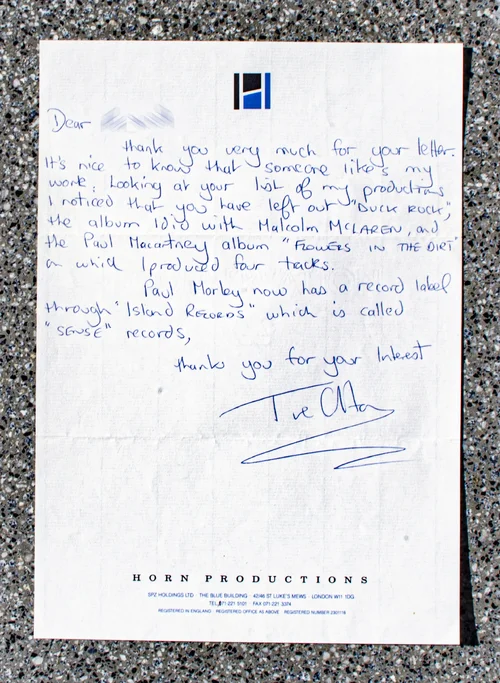 Dear
thank you very much for your letter.
It's nice to know that someone like's my
work. Looking at your list of my productions
I noticed that you have left out "DUCK ROCK",
the album I did with Malcolm McLAREN, and
the Paul Macartney album "FLOWERS IN THE DIRT"
on which I produced four tracks.
Paul Morley now has a record label
through "Island RECORDS" which is called
"SENSE" records,
thank you for your Interest
HORN PRODUCTIONS
SPZ HOLDINGS LTD · THE BLUE BUILDING · 42/46 ST LUKE'S MEWS · LONDON W11 1DG
TEL 071 221 5101 FAX 071 221 3374
REGISTERED IN ENGLAND · REGISTERED OFFICE AS ABOVE · REGISTERED NUMBER